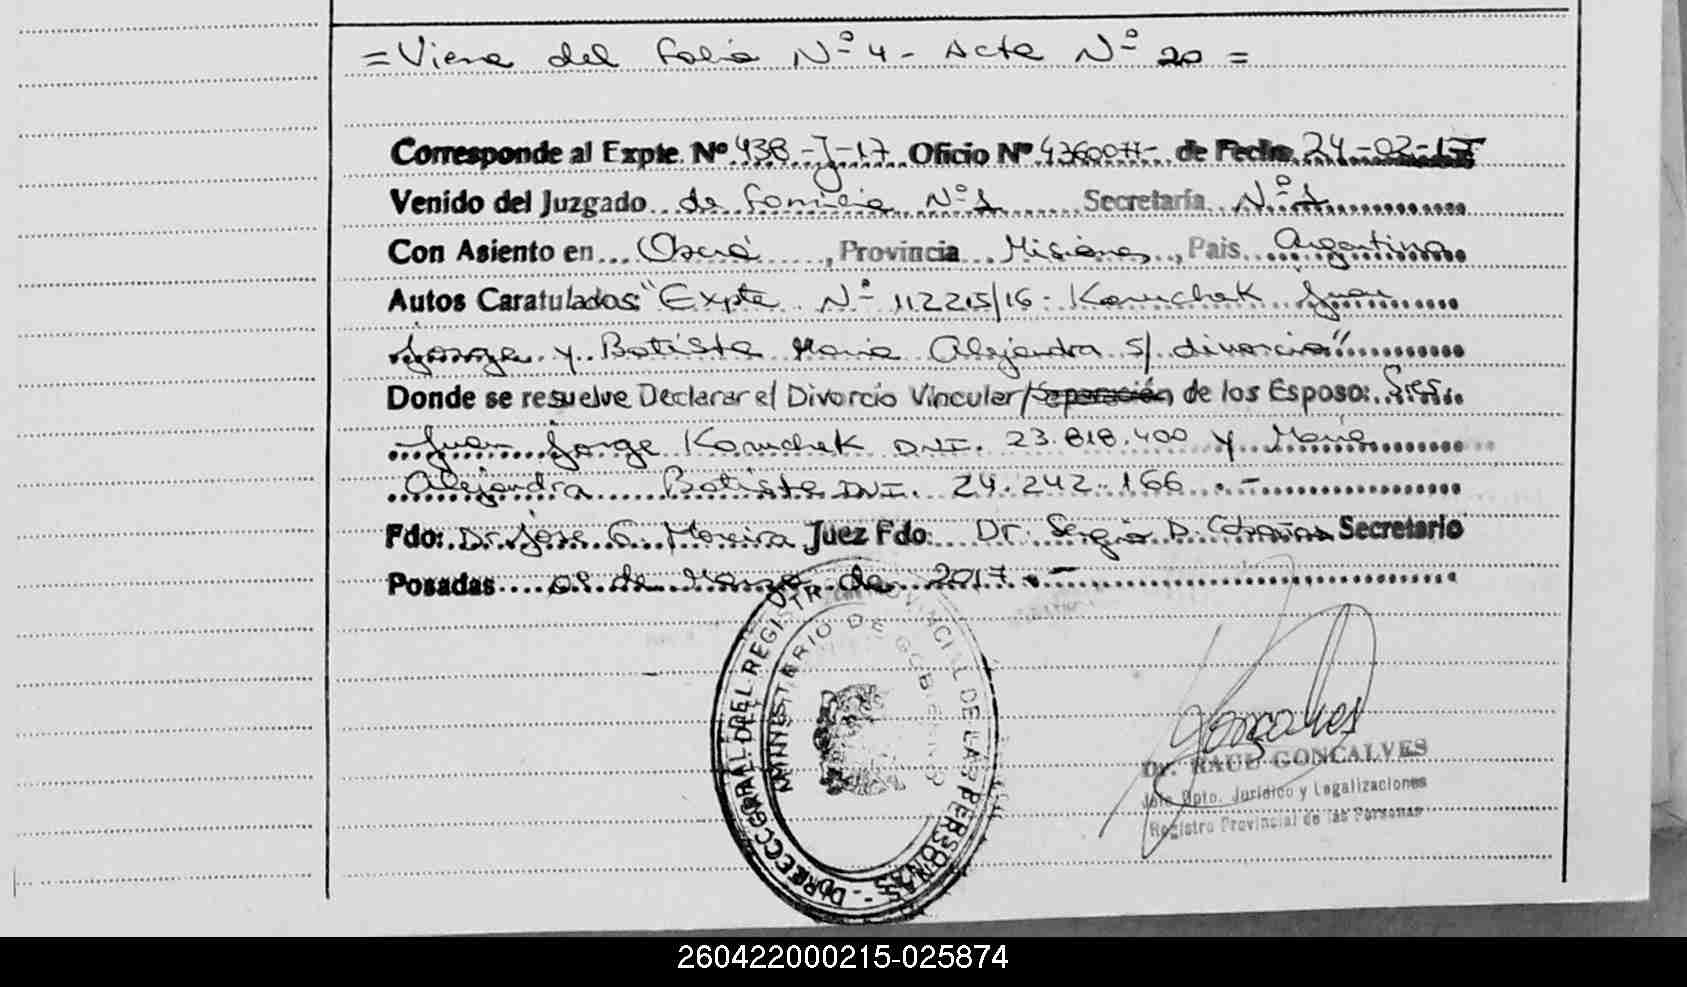 = Viene del Folio Nº 4 - Acta Nº 20 =
Corresponde al Expte. Nº 438-J-17 Oficio Nº de Fecha 24-02-17
Venido del Juzgado de Familia Nº 1 Secretaría Nº 1
Con Asiento en Oberá, Provincia Misiones, País Argentina
Autos Caratulados: "Expte Nº 112215/16 - Koruchek Juan
Jorge y Batista Maria Alejandra S/ divorcio"
Donde se resuelve Declarar el Divorcio Vincular/Separación de los Esposo: Sres.
Juan Jorge Koruchek DNI. 23.818.400 y María
Alejandra Batista DNI. 24.242.166 . -
Fdo: Dr. Jose G. Moreira Juez Fdo: Dr. Sergio D. Secretario
Posadas 08 de Marzo de 2017 . -
DIRECC. GRAL. DEL REGISTRO PROVINCIAL DE LAS PERSONAS -
MINISTERIO DE GOBIERNO
Goncalves
Dr. RAUL GONCALVES
Jefe Dpto. Jurídico y Legalizaciones
Registro Provincial de las Personas
260422000215-025874